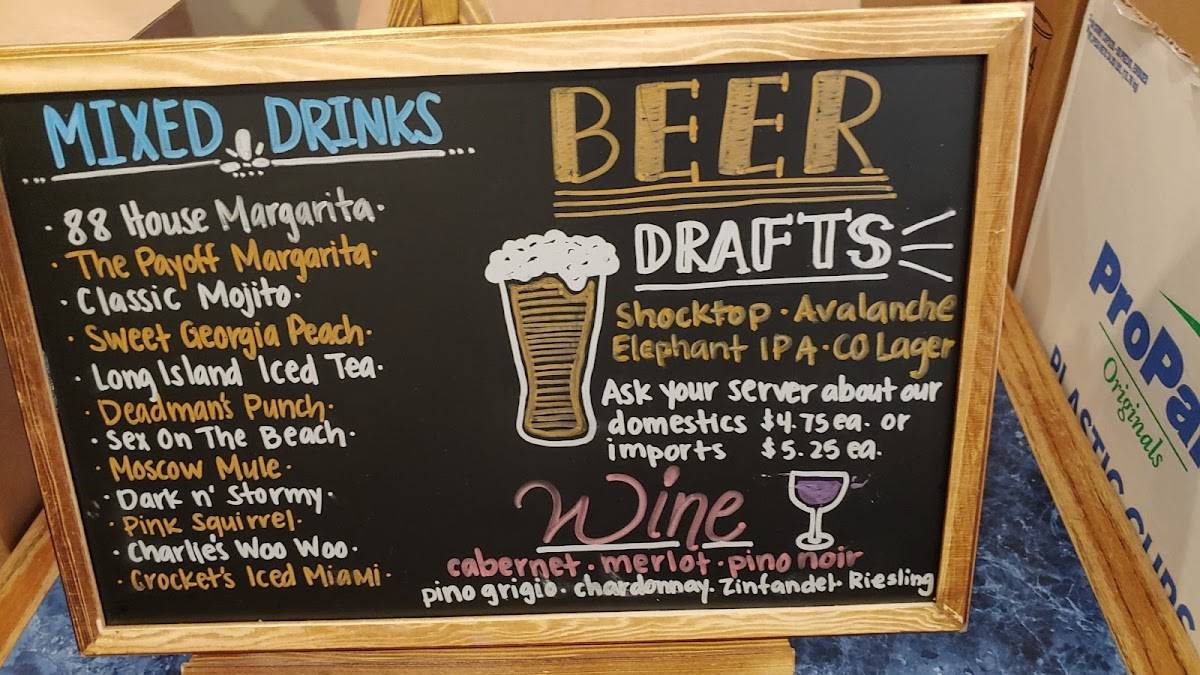 MIXED DRINKS
· 88 House Margarita ·
· The Payoff Margarita ·
· Classic Mojito ·
· Sweet Georgia Peach ·
· Long Island Iced Tea ·
· Deadman's Punch ·
· Sex On The Beach ·
· Moscow Mule ·
· Dark n' Stormy ·
· Pink Squirrel ·
· Charlie's Woo Woo ·
· Crocket's Iced Miami ·
BEER
DRAFTS
Shocktop · Avalanche
Elephant IPA · CO Lager
Ask your server about our
domestics $4.75 ea. or
imports $5.25 ea.
Wine
cabernet · merlot · pino noir
pino grigio · chardonnay · Zinfandel · Riesling
ProPa
Originals